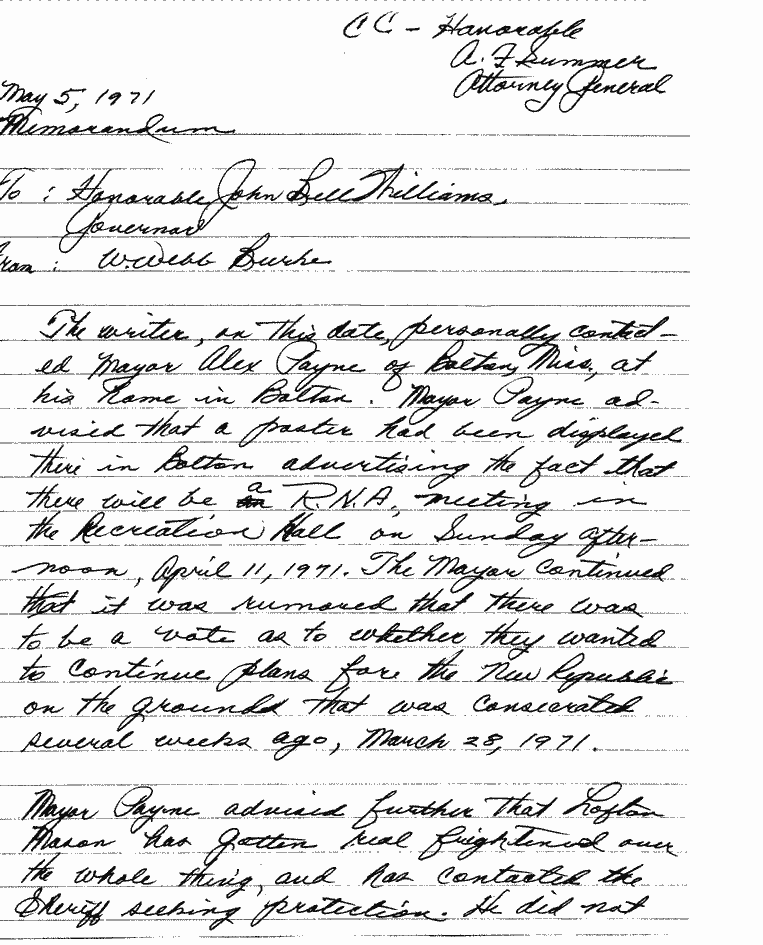 CC - Honorable
A. F. Summer
Attorney General
May 5, 1971
Memorandum
To : Honorable John Bell Williams,
Governor
From : W. Webb Burke
The writer, on this date, personally contact-
ed Mayor Alex Payne of Bolton, Miss., at
his home in Bolton. Mayor Payne ad-
vised that a poster had been displayed
there in Bolton advertising the fact that
there will be a R.N.A., meeting in
the Recreation Hall on Sunday after-
noon, April 11, 1971. The Mayor continued
that it was rumored that there was
to be a vote as to whether they wanted
to continue plans fore the New Republic
on the grounds that was consecrated
several weeks ago, March 28, 1971.
Mayor Payne advised further that Lofton
Mason has gotten real frightened over
the whole thing, and has contacted the
Sheriff seeking protection. He did not